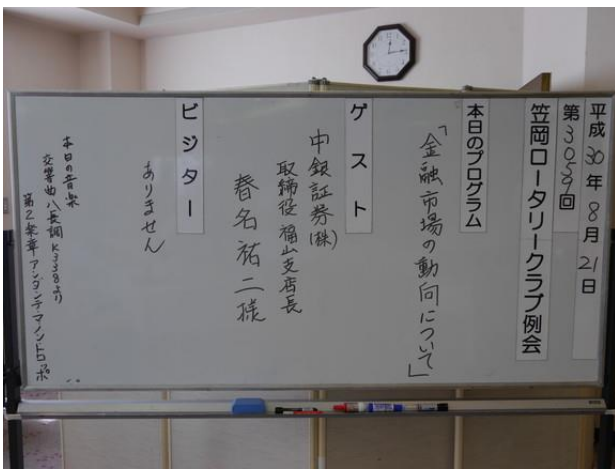 平成30年8月21日
第3059回
笠岡ロータリークラブ例会
本日のプログラム
「金融市場の動向について」
ゲスト
中銀証券(株)
取締役 福山支店長
春名祐二様
ビジター
ありません
本日の音楽
交響曲ハ長調 K338より
第2楽章アンダンテ